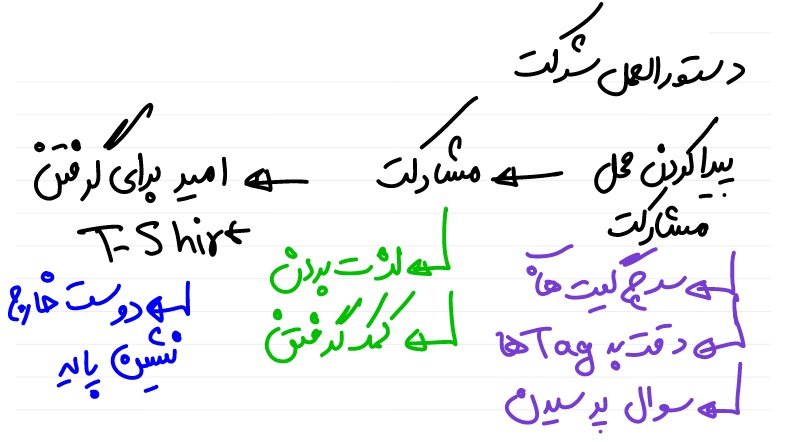 دستورالعمل شرکت
پیدا کردن محل مشارکت ← مشارکت ← امید برای گرفتن T-Shirt
سرچ گیت هاب
دقت به Tag ها
سوال پرسیدن
لذت بردن
کمک گرفتن
دوست خارج
نشین پایه